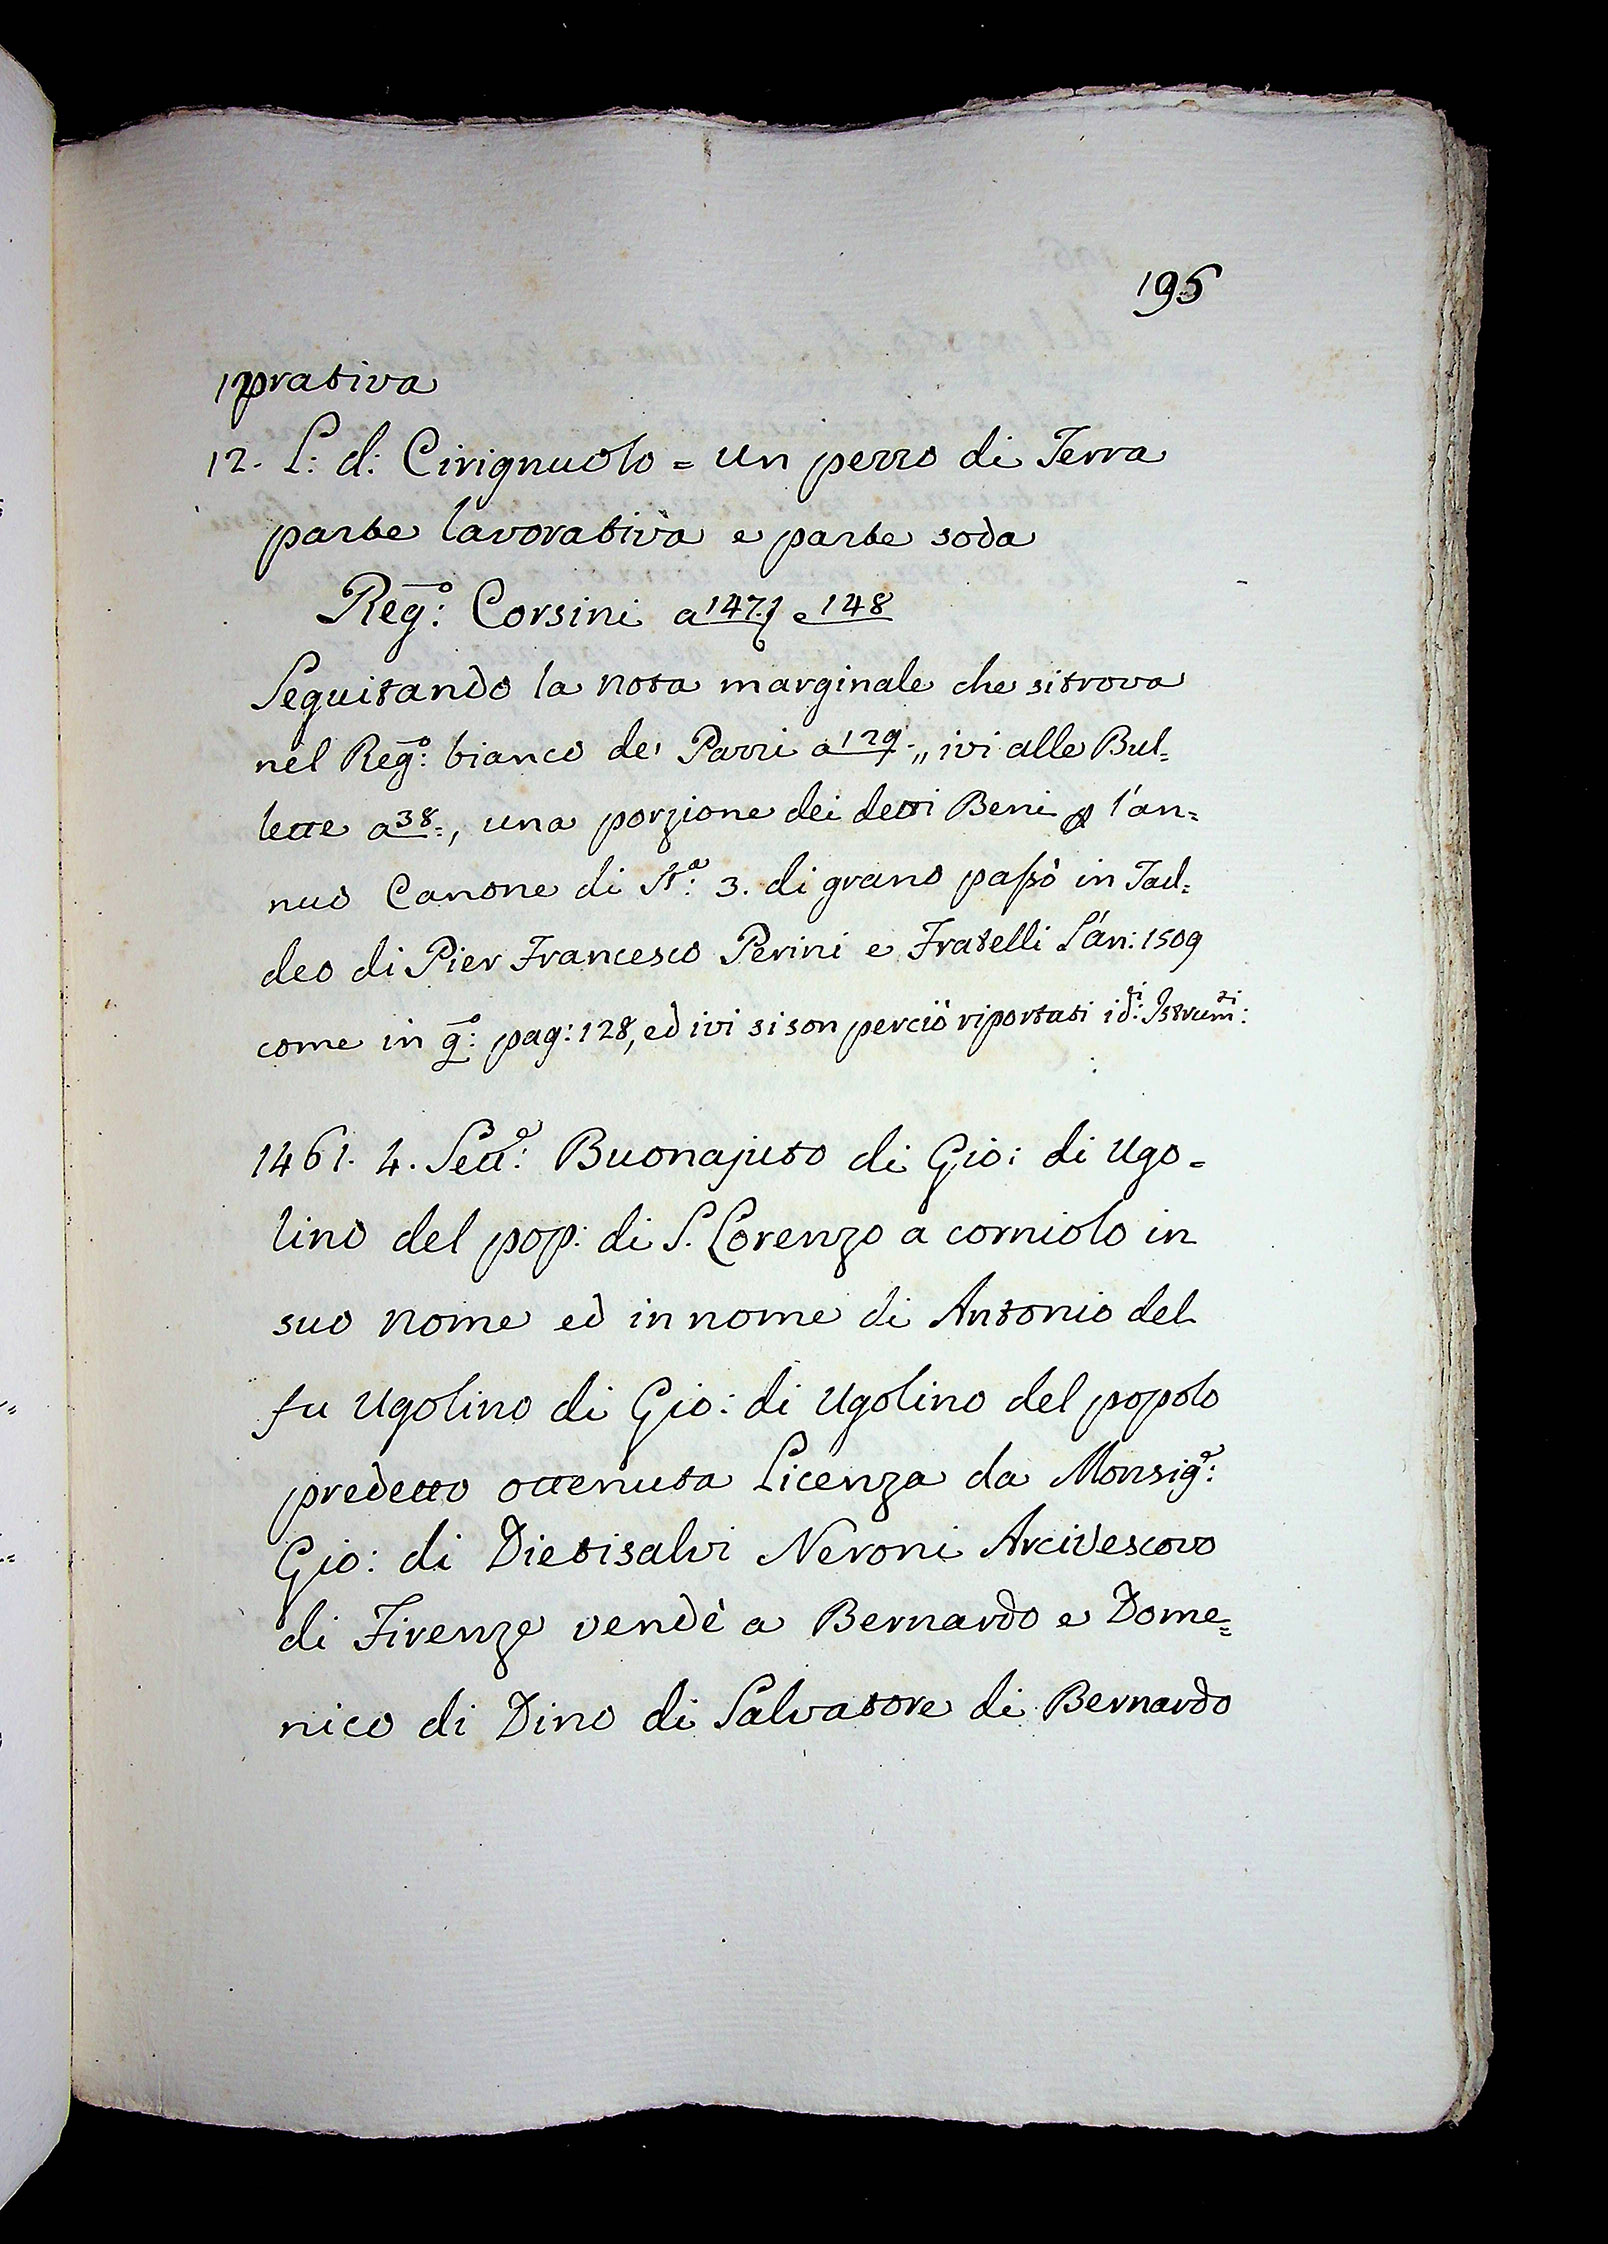 195
prativa
12. L: d: Cirignuolo = un pezzo di Terra
parte lavorativa e parte soda
Reg.º: Corsini a 147. e 148
Seguitando la nota marginale che si trova
nel Reg.º: bianco de' Pazzi a 129. „ ivi alle Bul=
lette a 38=, una porzione dei detti Beni p l'an=
nuo Canone di St.ª: 3. di grano passò in Tad=
deo di Pier Francesco Perini e Fratelli L'an: 1509
come in q.º: pag: 128, ed ivi si son perciò riportati i d.i: Istrum.ti:
1461. 4. Sett.e: Buonajuto di Gio: di Ugo=
lino del pop: di S. Lorenzo a corniolo in
suo nome ed in nome di Antonio del
fu Ugolino di Gio: di Ugolino del popolo
predetto ottenuta Licenza da Monsig.e:
Gio: di Dietisalvi Neroni Arcivescovo
di Firenze vendè a Bernardo e Dome=
nico di Dino di Salvatore di Bernardo